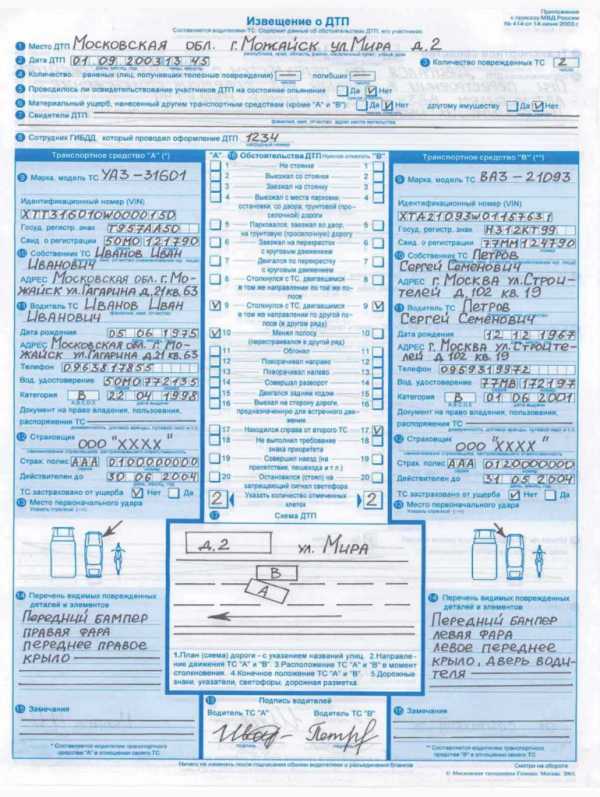 Извещение о ДТП
Приложение
к приказу МВД России
№ 414 от 14 июня 2003 г.
Составляется водителями ТС. Содержит данные об обстоятельствах ДТП, его участниках.
1 Место ДТП Московская обл. г. Можайск ул. Мира д.2
2 Дата ДТП 01 09 2003 13 45
3 Количество поврежденных ТС 2
4 Количество раненых (лиц, получивших телесные повреждения) — погибших —
5 Проводилось ли освидетельствование участников ДТП на состояние опьянения Да Нет
6 Материальный ущерб, нанесенный другим транспортным средствам (кроме "А" и "В") Да Нет другому имуществу Да Нет
7 Свидетели ДТП
фамилия, имя, отчество, адрес места жительства
8 Сотрудник ГИБДД, который проводил оформление ДТП 1234
нагрудный номер
Транспортное средство "А" (*)
9 Марка, модель ТС УАЗ-31601
Идентификационный номер (VIN)
ХТТ316010W0000150
Госуд. регистр. знак Т957АА50
Свид. о регистрации 50МО 121790
10 Собственник ТС Иванов Иван
Иванович
АДРЕС Московская обл. г. Мо-
жайск ул. Гагарина д.21 кв.63
11 Водитель ТС Иванов Иван
Иванович
Дата рождения 05 06 1975
АДРЕС Московская обл. г. Мо-
жайск ул. Гагарина д.21 кв.63
Телефон 0963817855
Вод. удостоверение 50МО 772135
Категория В 22 04 1998
A,B,C,D,E
Документ на право владения, пользования,
распоряжения ТС
12 Страховщик ООО "ХХХХ"
Страх. полис ААА 0100000000
Действителен до 30 06 2004
ТС застраховано от ущерба Нет Да
13 Место первоначального удара
Указать стрелкой (→)
14 Перечень видимых поврежденных
деталей и элементов
Передний бампер
правая фара
переднее правое
крыло
15 Замечания
* Составляется водителем транспортного
средства "А" в отношении своего ТС.
"А" 16 Обстоятельства ДТП Нужное отметить "В"
1 На стоянке 1
2 Выезжал со стоянки 2
3 Заезжал на стоянку 3
4 Выезжал с места парковки, 4
остановки, со двора, грунтовой (про-
селочной) дороги
5 Парковался, заезжал во двор, 5
на грунтовую (проселочную) дорогу
6 Заезжал на перекресток 6
с круговым движением
7 Двигался по перекрестку 7
с круговым движением
8 Столкнулся с ТС, двигавшимся 8
в том же направлении по той же по-
лосе
9 Столкнулся с ТС, двигавшимся 9
в том же направлении по другой по-
лосе (в другом ряду)
10 Менял полосу 10
(перестраивался в другой ряд)
11 Обгонял 11
12 Поворачивал направо 12
13 Поворачивал налево 13
14 Совершал разворот 14
15 Двигался задним ходом 15
16 Выехал на сторону дороги, 16
предназначенную для встречного дви-
жения
17 Находился справа от второго ТС 17
18 Не выполнил требование 18
знака приоритета
19 Совершил наезд (на 19
препятствие, пешехода и т.п.)
20 Остановился (стоял) на 20
запрещающий сигнал светофора
2 Указать количество отмеченных 2
клеток
17 Схема ДТП
д.2 ул. Мира
В
А
1.План (схема) дороги - с указанием названий улиц. 2.Направле-
ние движения ТС "А" и "В". 3.Расположение ТС "А" и "В" в момент
столкновения. 4.Конечное положение ТС "А" и "В". 5.Дорожные
знаки, указатели, светофоры, дорожная разметка.
18 Подпись водителей
Водитель ТС "А" Водитель ТС "В"
Транспортное средство "В" (**)
9 Марка, модель ТС ВАЗ-21093
Идентификационный номер (VIN)
ХТА21093W01157631
Госуд. регистр. знак Н312КТ99
Свид. о регистрации 77ММ 124790
10 Собственник ТС Петров
Сергей Семенович
АДРЕС г. Москва ул. Строи-
телей д.102 кв.19
11 Водитель ТС Петров
Сергей Семенович
Дата рождения 12 12 1967
АДРЕС г. Москва ул. Строите-
лей д 102 кв. 19
Телефон 0959319972
Вод. удостоверение 77МВ 172197
Категория В 01 06 2001
A,B,C,D,E
Документ на право владения, пользования,
распоряжения ТС
12 Страховщик ООО "ХХХХ"
Страх. полис ААА 0120000000
Действителен до 31 05 2004
ТС застраховано от ущерба Нет Да
13 Место первоначального удара
Указать стрелкой (→)
14 Перечень видимых поврежденных
деталей и элементов
Передний бампер
левая фара
левое переднее
крыло, дверь води-
теля
15 Замечания
** Составляется водителем транспортного
средства "В" в отношении своего ТС.
Ничего не изменять после подписания обоими водителями и разъединения бланков
Смотри на обороте